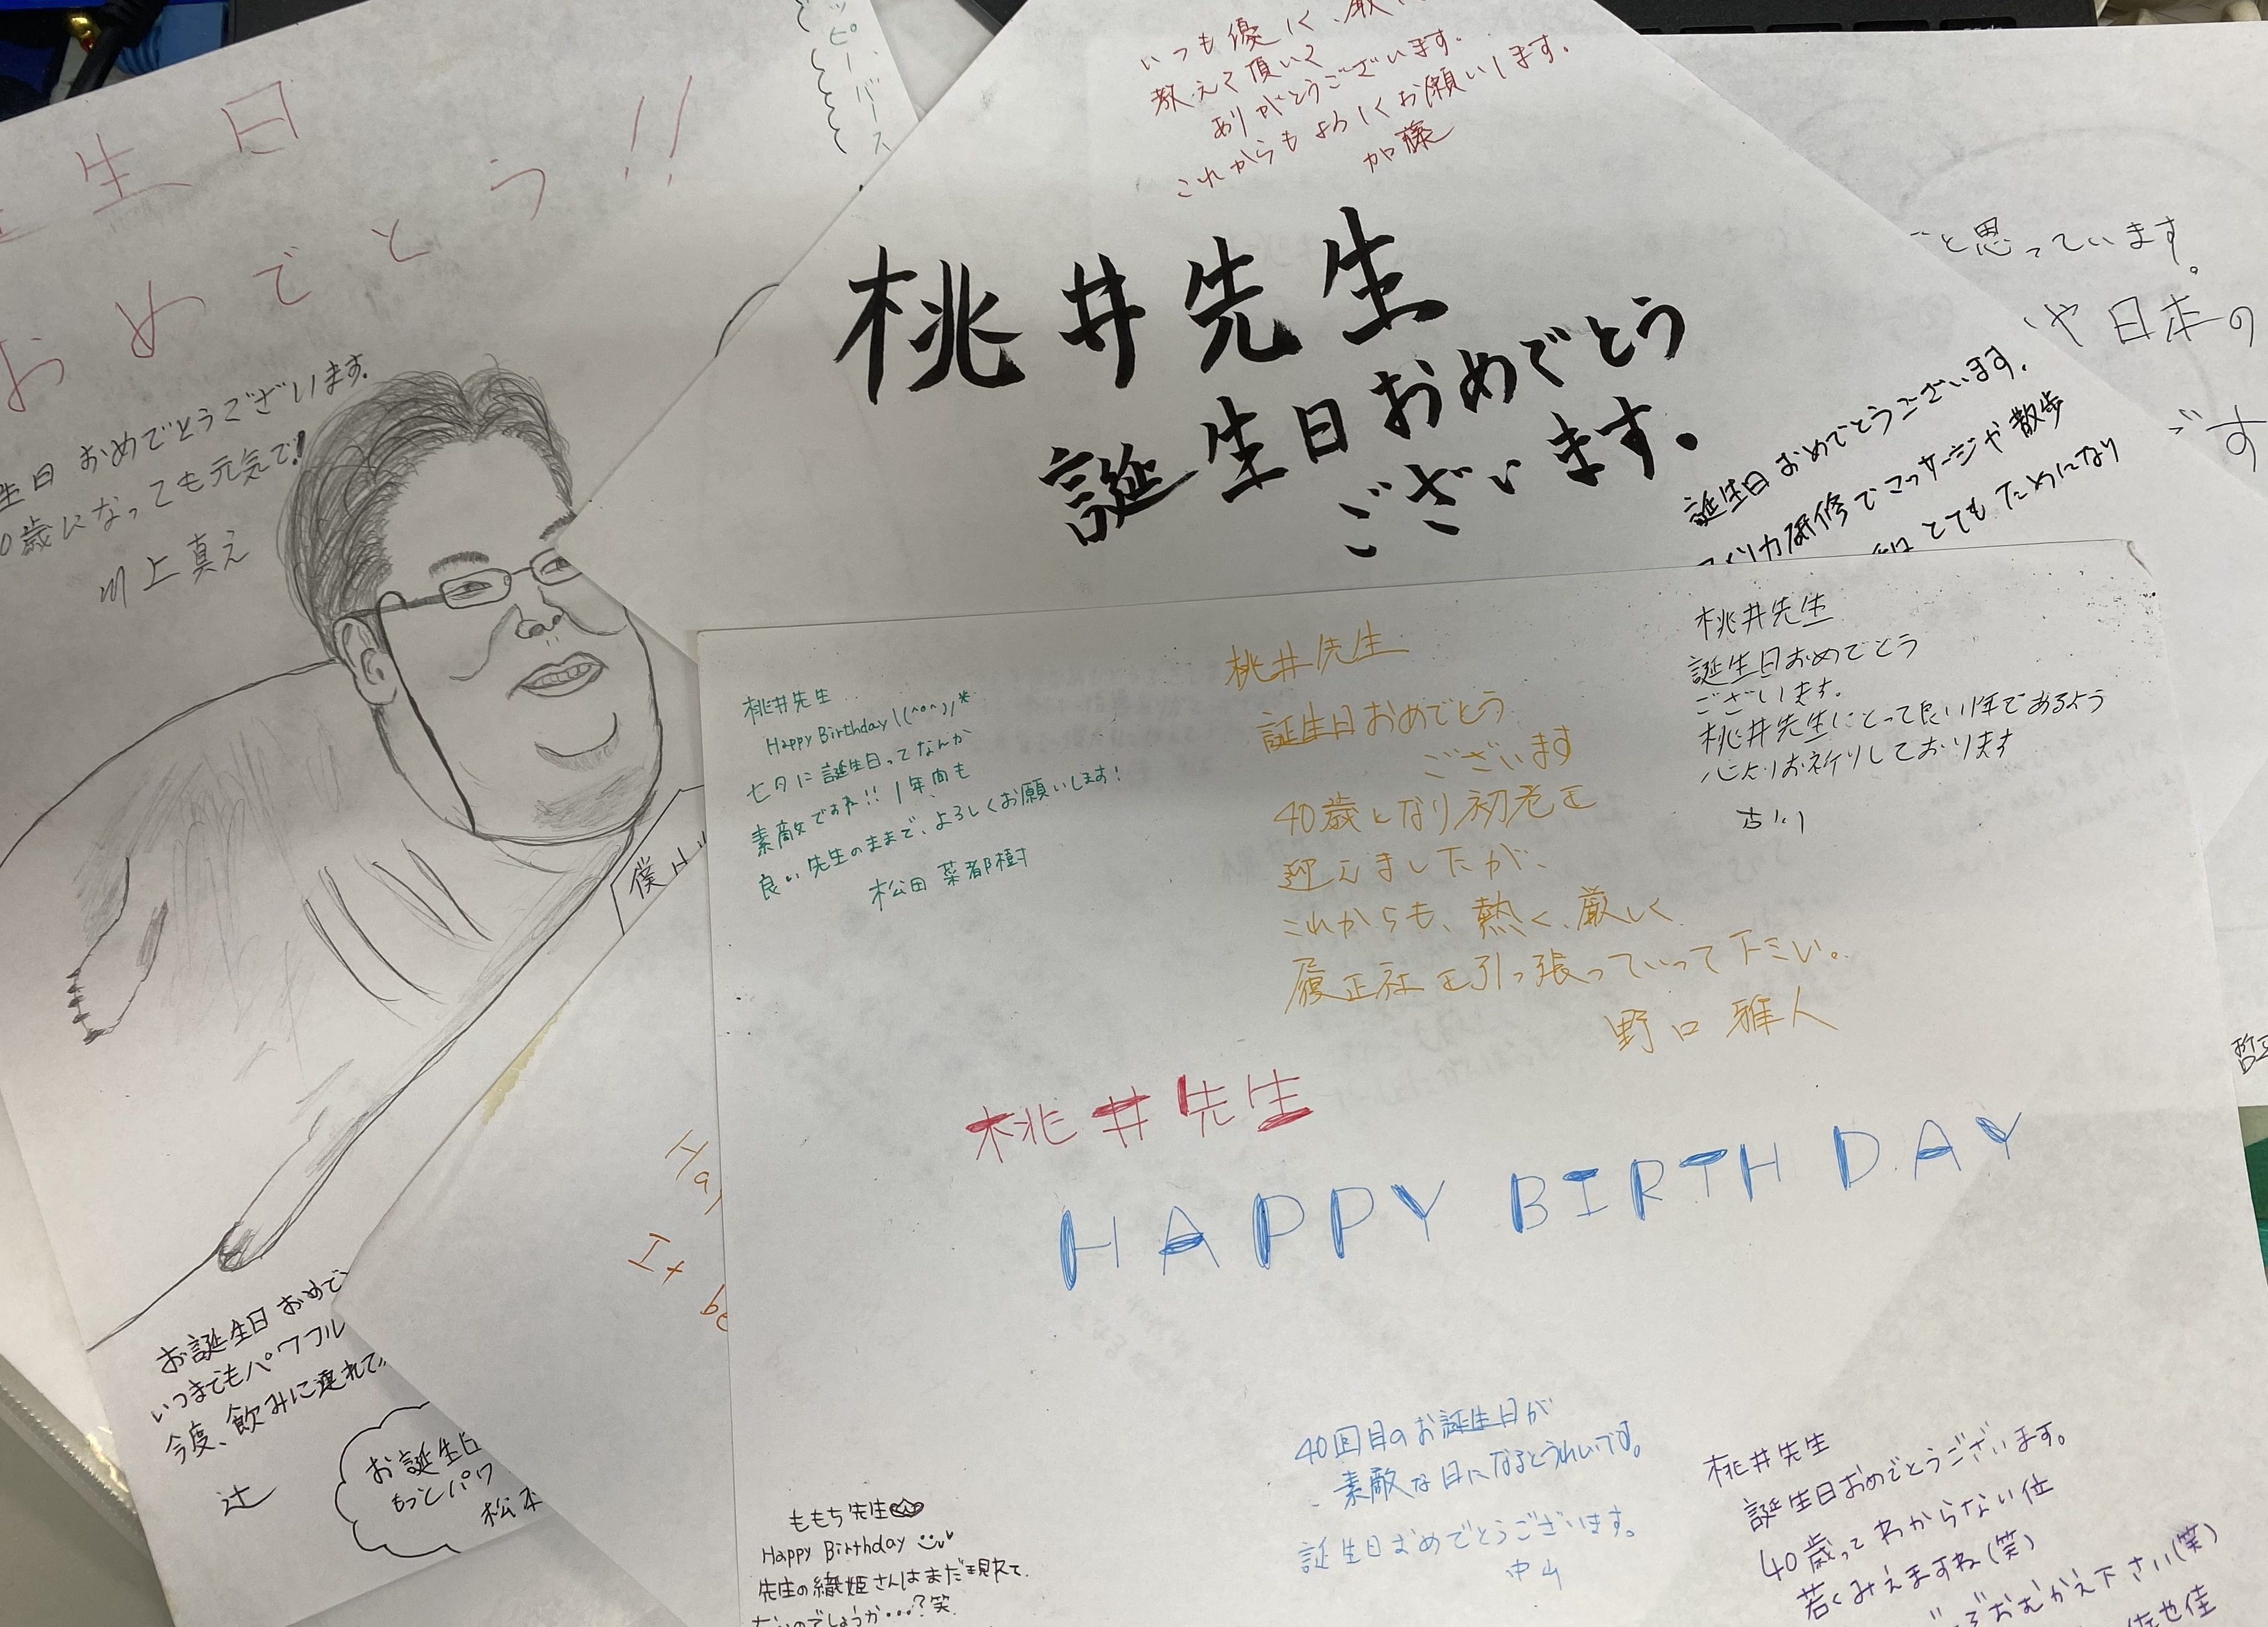 生日
おめでとう!!
生日 おめでとうございます。
0歳になっても元気で!
川上真え
ッピーバース
いつも優しく、厳し
教えて頂いて
ありがとうございます。
これからもよろしくお願いします。
加藤
桃井先生
誕生日おめでとう
ございます。
と思っています。
や日本の
です
誕生日おめでとうございます。
リカ研修でマッサージや散歩
とてもためになり
僕は
桃井先生
Happy Birthday \(^o^)/*
七夕に誕生日ってなんか
素敵ですね!! 1年間も
良い先生のままで、よろしくお願いします!
松田 菜都樹
桃井先生
誕生日おめでとう
ございます
40歳となり初老を
迎えましたが、
これからも、熱く、厳しく
履正社を引っ張っていって下さい。
野口 雅人
桃井先生
誕生日おめでとう
ございます。
桃井先生にとって良い1年であるよう
心よりお祈りしております
古川
桃井先生
HAPPY BIRTHDAY
Ha
It be
お誕生日おめで
いつまでもパワフル
今度、飲みに連れて
辻
お誕生日
もっとパワ
松本
ももち先生
Happy Birthday
先生の織姫さんはまだ現れて
ないのでしょうか…?笑
40回目のお誕生日が
素敵な日になるとうれしいです。
誕生日おめでとうございます。
中山
桃井先生
誕生日おめでとうございます。
40歳ってわからない位
若くみえますね(笑)
おむかえ下さい(笑)
佐也佳